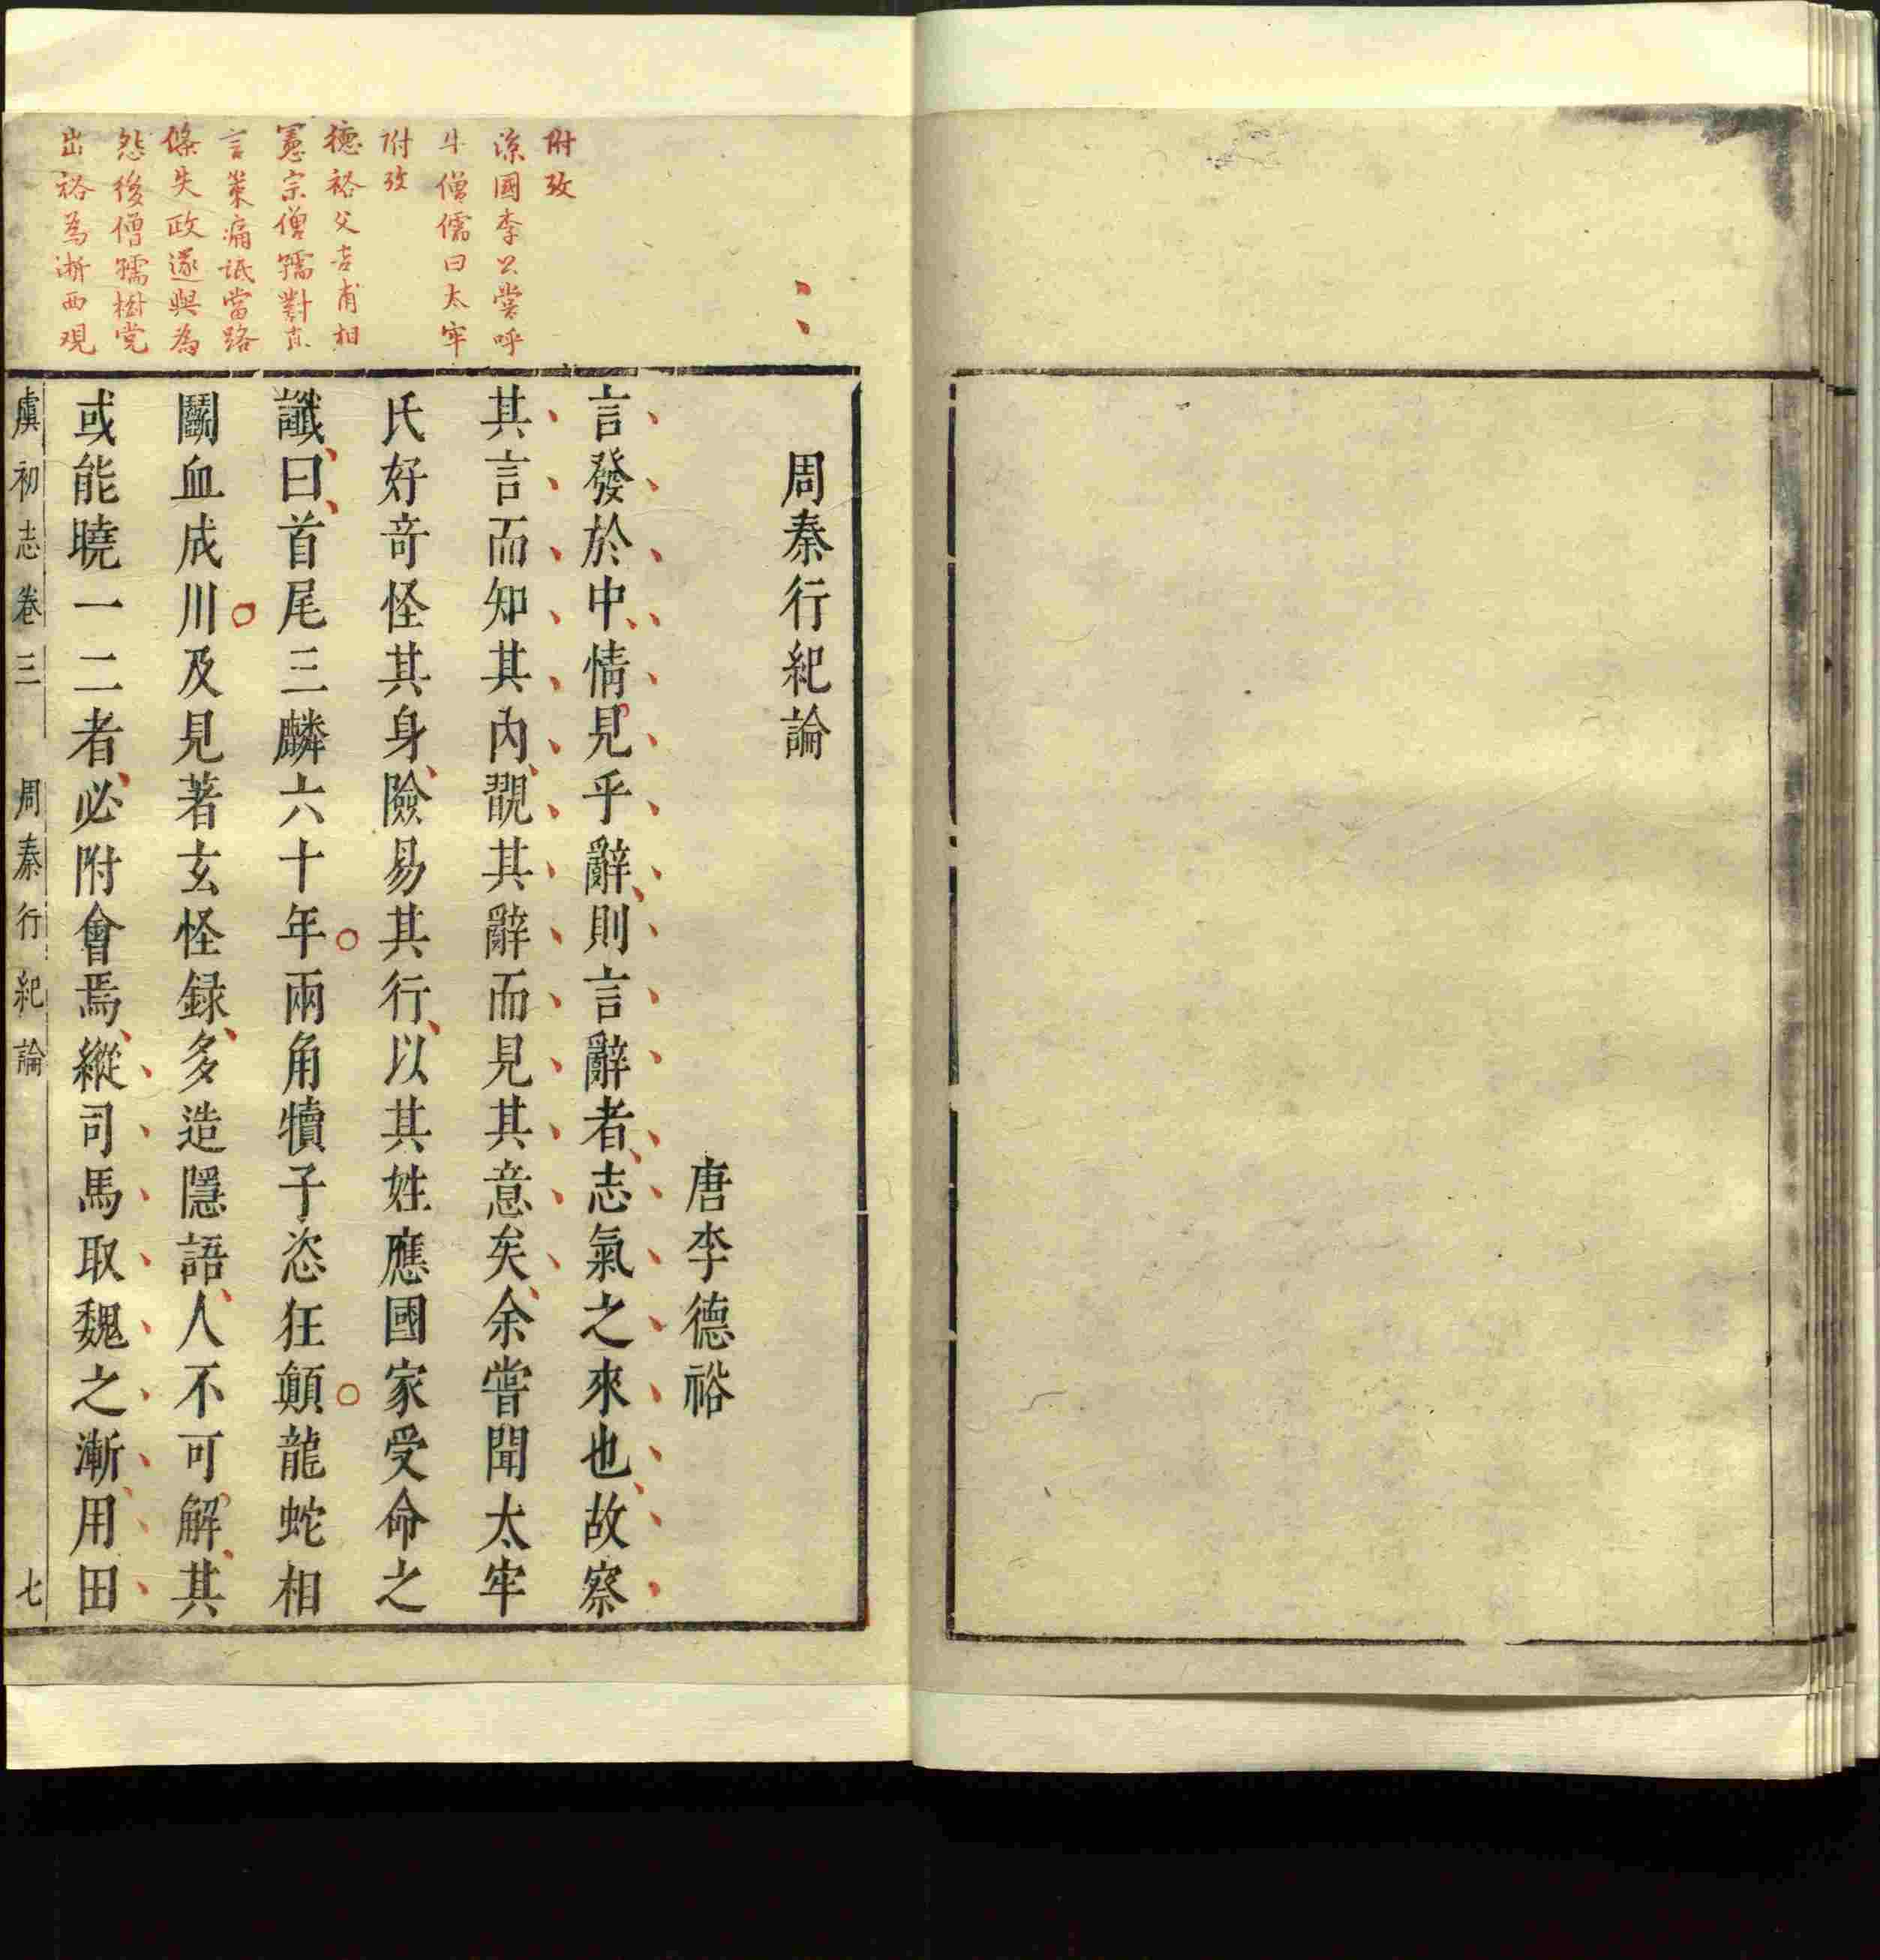 附攷
涼國李公嘗呼
牛僧儒曰太牢
附攷
德裕父吉甫相
憲宗僧孺對直
言策痛詆當路
條失政遂與為
怨後僧孺樹党
出裕為浙西观
周秦行紀論
唐李德裕
言發於中情見乎辭則言辭者志氣之來也故察
其言而知其內覩其辭而見其意矣余嘗聞太牢
氏好奇怪其身險易其行以其姓應國家受命之
讖曰首尾三麟六十年兩角犢子恣狂顛龍蛇相
鬭血成川及見著玄怪録多造隱語人不可解其
或能曉一二者必附會焉縱司馬取魏之漸用田
虞初志卷三 周秦行紀論 七